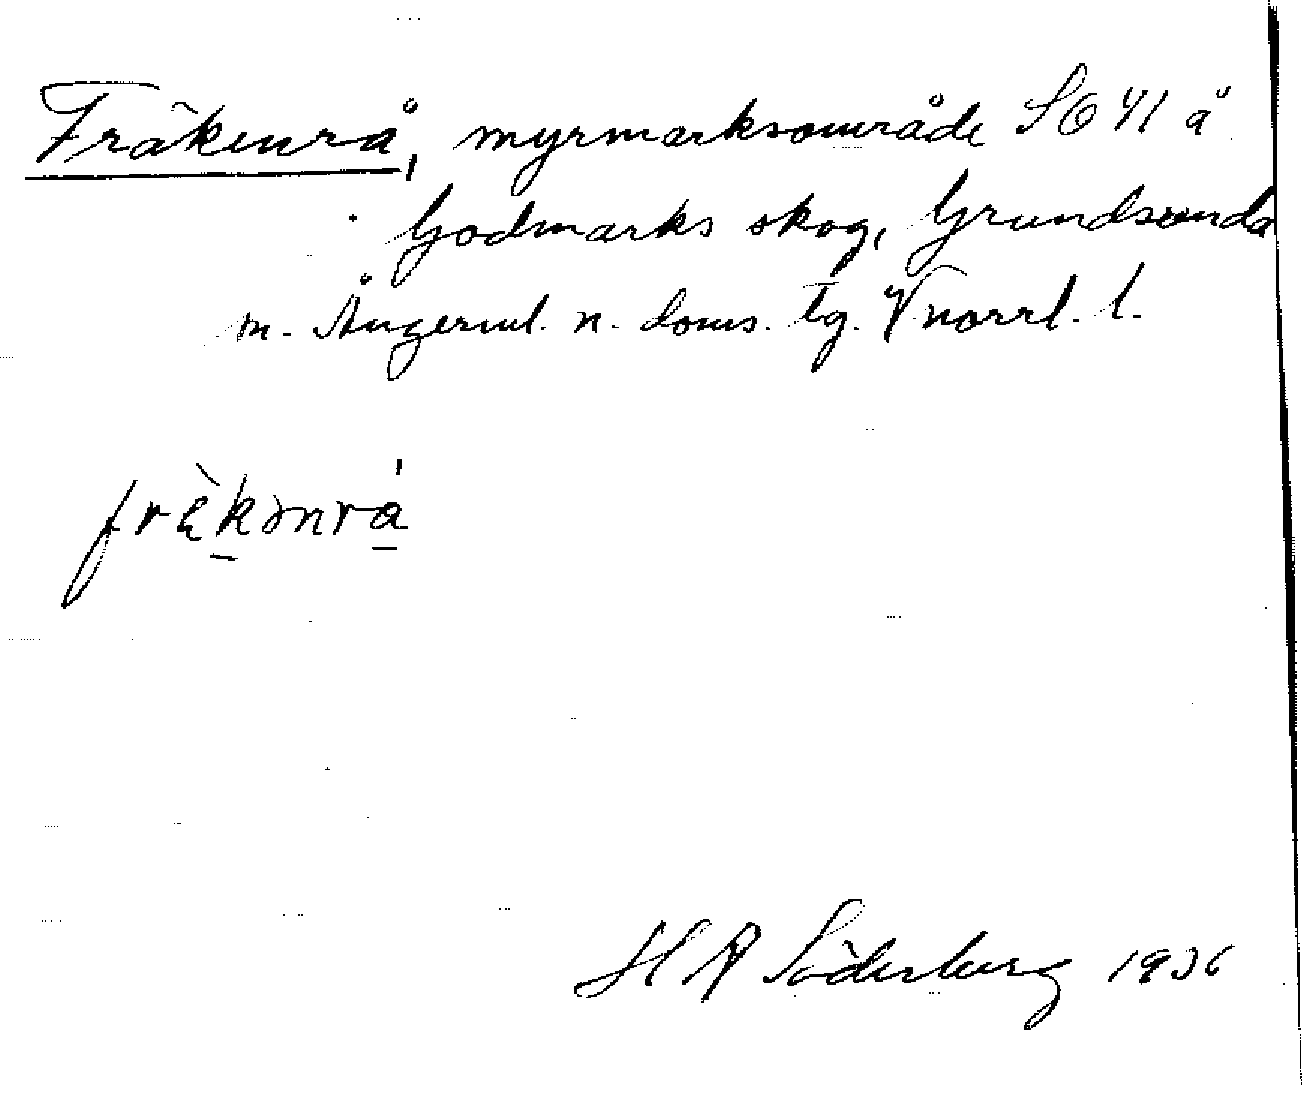 Fräkenrå, myrmarksområde SO 41 å
Godmarks skog, Grundsunda
m. Ångerml. n. doms. tg. Vnorrl. l.
frɛ̀kənrá
H R Söderberg 1936